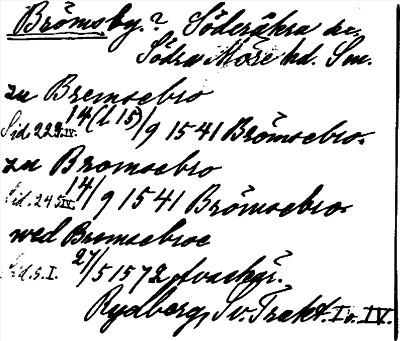 Brömsby.? Söderåkra sn.
Södra Möre hd. Sm.
zu Bremsebro
Sid. 229.IV. 14(l.15)/9 1541 Brömsebro.
zu Bromsebro
Sid. 245.IV. 14/9 1541 Brömsebro.
wed Bromsebroe
Sid. 5. I. 27/5 1572 avskr.
Rydberg, Sv. Trakt. I o. IV.